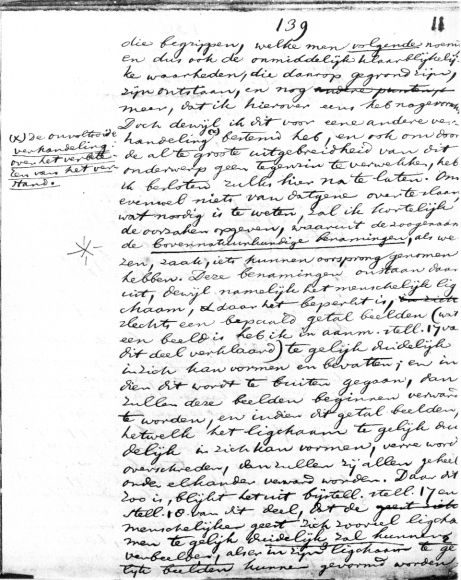 139 11
die begrippen, welke men volgende noemt
en dus ook de onmiddelijk klaarblijkelij-
ke waarheden, die daarop gegrond zijn,
zijn ontstaan, en nog andere
meer, dat ik hierover eens heb nagevorscht.
Doch dewijl ik dit voor eene andere ver-
handeling (x) bestemd heb, en ook om door
de al te groote uitgebreidheid van dit
onderwerp geen tegenzin te verwekken, heb
ik besloten zulks hier na te laten. Om
evenwel niets van datgene over te slaan
wat nodig is te weten, zal ik kortelijk
de oorzaken opgeven, waaruit de zoogenaam
de bovennatuurkundige benamingen, als we
zen, zaak, iets hunnen oorsprong genomen
hebben. Deze benamingen ontstaan daar
uit, dewijl namelijk het menschelijk lig
chaam, daar het beperkt is,
slechts een bepaald getal beelden (wat
een beeld is heb ik in aanm. stell. 17 van
dit deel verklaard) te gelijk duidelijk
in zich kan vormen en bevatten; en in
dien dit wordt te buiten gegaan, dan
zullen deze beelden beginnen verward
te worden, en indien dit getal beelden,
hetwelk het ligchaam te gelijk dui
delijk in zich kan vormen, verre word
overschreden, dan zullen zij allen geheel
onder elkander verward worden. Daar dit
zoo is, blijkt het uit bijstell. stell. 17 en
stell. 18 van dit deel, dat de geest zich
menschelijke geest zich zooveel ligcha
men te gelijk duidelijk zal kunnen
verbeelden, als er in zijn ligchaam te ge
lijk beelden kunnen gevormd worden
(x) De onvoltooide
verhandeling
over het verbete
ren van het ver
stand.